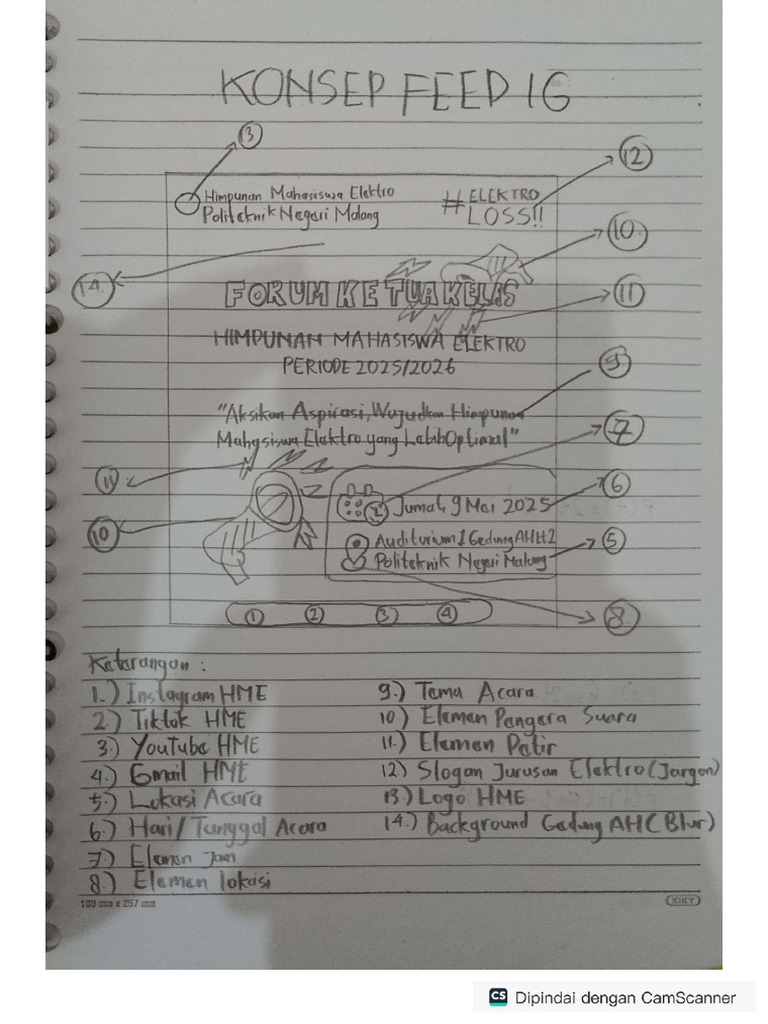 KONSEP FEED IG
3
12
Himpunan Mahasiswa Elektro
Politeknik Negeri Malang
# ELEKTRO
LOSS!!
10
14
FORUM KETUA KELAS
11
HIMPUNAN MAHASISWA ELEKTRO
PERIODE 2025/2026
9
"Aksikan Aspirasi, Wujudkan Himpunan
Mahasiswa Elektro yang Lebih Optimal"
7
11
6
Jumat, 9 Mei 2025
10
Auditorium 1 Gedung AH Lt 2
5
Politeknik Negeri Malang
8
1 2 3 4
Keterangan :
1.) Instagram HME
2.) Tiktok HME
3.) YouTube HME
4.) Gmail HME
5.) Lokasi Acara
6.) Hari/Tanggal Acara
7.) Elemen Jam
8.) Elemen lokasi
9.) Tema Acara
10) Elemen Pengera Suara
11.) Elemen Petir
12.) Slogan Jurusan Elektro (Jargon)
13.) Logo HME
14.) Background Gedung AH (Blur)
160 mm x 257 mm
KIKY
CS Dipindai dengan CamScanner